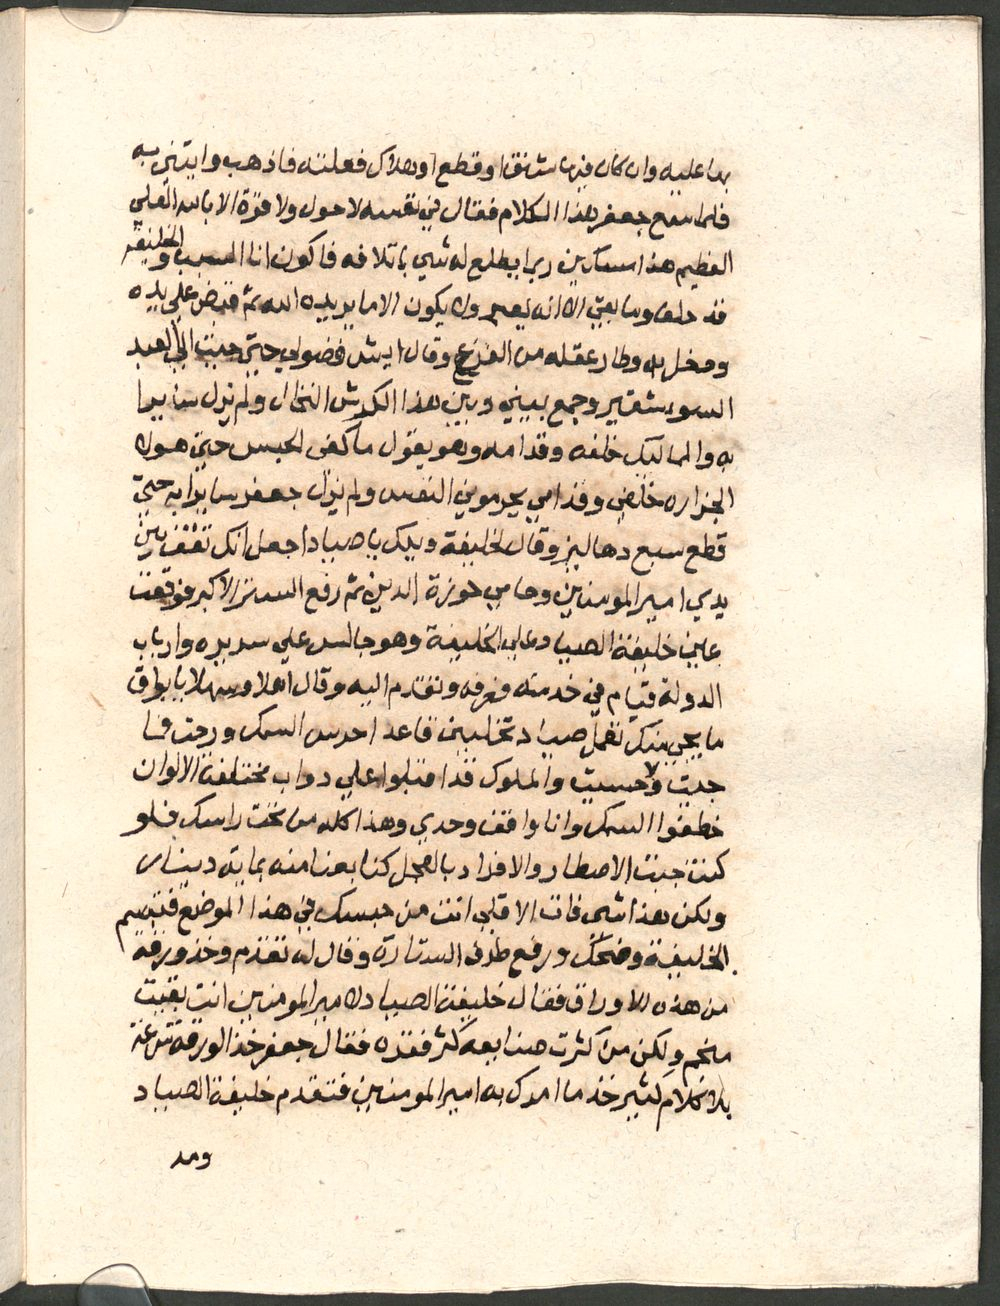 بها عليه وان كان فيها شنقا او قطع او هلاك فعلته فاذهب وايتني به
فلما سمع جعفر هذا الكلام فقال في نفسه لا حول ولا قوة الا بالله العلي
العظيم هذا مسكين ربما يطلع له شي باتلافه فاكون انا السبب والخليفه
قد حلف وما بقي الا انه يعبر ولا يكون الا ما يريده الله ثم قبض علي يده
ودخل به وطار عقله من الفزع وقال ايش فضولي حتي جيت الي العبد
السو شقير وجمع بيني وبين هذا الكرش النخال ولم يزل سايرا
به والمماليك خلفه وقدامه وهو يقول ما كفي الحبس حتي هولاء
الجزاره خلفي وقدامي يحرموني النفس ولم يزل جعفر سايرا به حتي
قطع سبع دهاليز وقال لخليفة ويلك يا صياد اجعل انك تقف بين
يدي امير المومنين وحامي حوزة الدين ثم رفع الستر الاكبر فوقعت
عين خليفة الصياد علي الخليفة وهو جالس علي سريره وارباب
الدولة قيام في خدمته فعرفه وتقدم اليه وقال اهلا وسهلا يا بواق
ما يجي منك تعمل صياد تخليني قاعد احرس السمك ورحت فما
جيت ولا حسيت والملوك قد اقبلوا علي دواب مختلفة الالوان
خطفوا السمك وانا واقف وحدي وهذا كله من تحت راسك فلو
كنت جيت الاصطار والافراد بالعجل كنا بعنا منه بمايه دينار
ولكن هذا شي فات الا قلي انت من حبسك في هذا الموضع فتبسم
الخليفة وضحك ورفع طرف الستارة وقال له تقدم وخذ ورقة
من هذه الاوراق فقال خليفة الصياد لامير المومنين انت بقيت
منجم ولكن من كثرت صنايعه كثر فقره فقال جعفر خذ الورقة سرعة
بلا كلام كثير خذ ما امرك به امير المومنين فتقدم خليفة الصياد
ومد